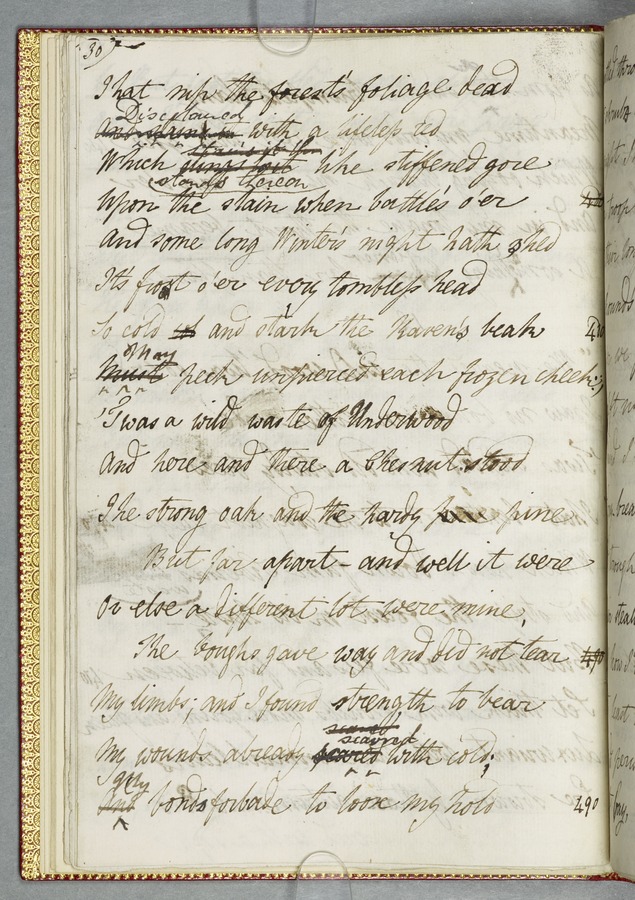 30
That nip the forest's foliage dead
Discoloured
with a lifeless red
Which
stands thereon like stiffened gore
Upon the slain when battle's o'er
And some long Winter's night hath shed
Its frost o'er every tombless head
So cold and stark the Raven's beak 480
May
Must peck unpierced each frozen cheek;
'Twas a wild waste of Underwood
And here and there a Chesnut stood
The strong oak and the hardy pine
But far apart – and well it were
Or else a different lot were mine,
The boughs gave way and did not tear 490
My limbs; and I found strength to bear
scarred
My wounds already scarred with cold;
My
bonds forbade to loose my hold 490